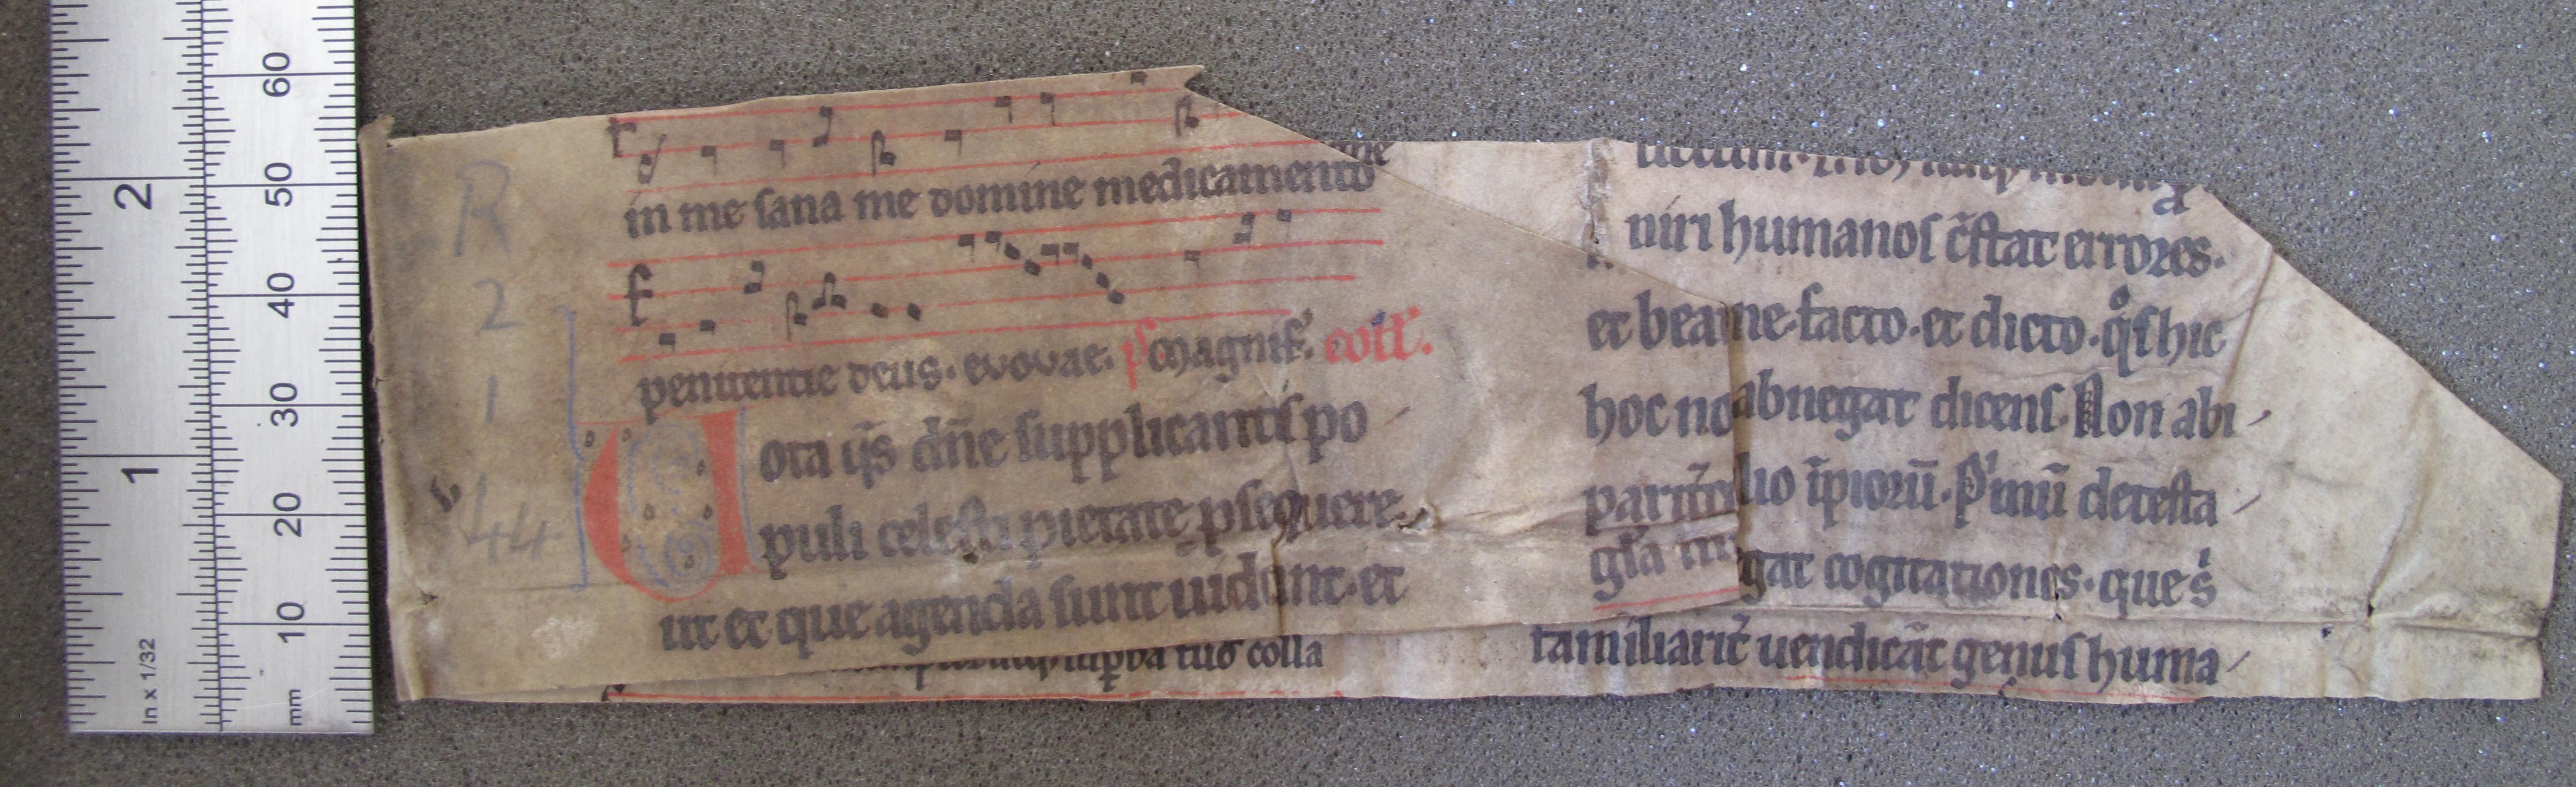 in me sana me domine medicamento
penitentie deus. evovae. ps magnif̄. coll'.
Uota q̄s dn̄e supplicantis po
puli celesti pietate psequere.
ut et que agenda sunt uideant. et
tuo colla
niri humanos c̄stat errores.
et bea ne. facto. et dicto. qͦs hic
hoc no abnegat dicens. Non abi
uo īpiorū. Pimū detesta
gl̄a gat cogitationes. que s
familiarit̄ uendicāt genus huma
R
2
1
44
b
60
50
40
30
20
10
mm
2
1
In x 1/32